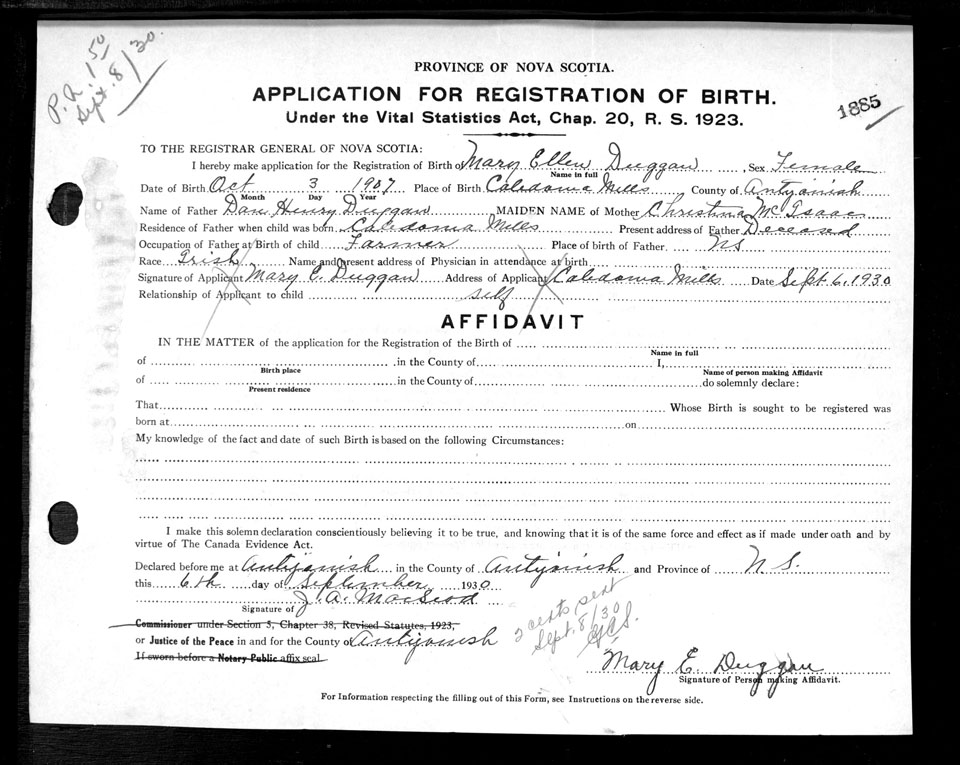 P.N. 1 50
Sept. 8/30.
PROVINCE OF NOVA SCOTIA.
APPLICATION FOR REGISTRATION OF BIRTH.
1885
Under the Vital Statistics Act, Chap. 20, R. S. 1923.
TO THE REGISTRAR GENERAL OF NOVA SCOTIA:
I hereby make application for the Registration of Birth of Mary Ellen Duggan, Sex Female
Name in full
Date of Birth Oct 3 1907 Place of Birth Caledonia Mills County of Antigonish
Month Day Year
Name of Father Dan Henry Duggan MAIDEN NAME of Mother Christina McIsaac
Residence of Father when child was born Caledonia Mills Present address of Father Deceased
Occupation of Father at Birth of child Farmer Place of birth of Father NS
Race Irish Name and present address of Physician in attendance at birth
Signature of Applicant Mary E. Duggan Address of Applicant Caledonia Mills Date Sept 6, 1930
Relationship of Applicant to child self
AFFIDAVIT
IN THE MATTER of the application for the Registration of the Birth of
Name in full
of in the County of I,
Birth place Name of person making Affidavit
of in the County of do solemnly declare:
Present residence
That Whose Birth is sought to be registered was
born at on
My knowledge of the fact and date of such Birth is based on the following Circumstances:
I make this solemn declaration conscientiously believing it to be true, and knowing that it is of the same force and effect as if made under oath and by
virtue of The Canada Evidence Act.
Declared before me at Antigonish in the County of Antigonish and Province of N S.
this 6th day of September 1930
J. A. MacLeod
Signature of
2 cents sent
Sept. 8/30
G.C.S.
Commissioner under Section 3, Chapter 38, Revised Statutes, 1923,
or Justice of the Peace in and for the County of Antigonish
If sworn before a Notary Public affix seal
Mary E Duggan
Signature of Person making Affidavit.
For Information respecting the filling out of this Form, see Instructions on the reverse side.